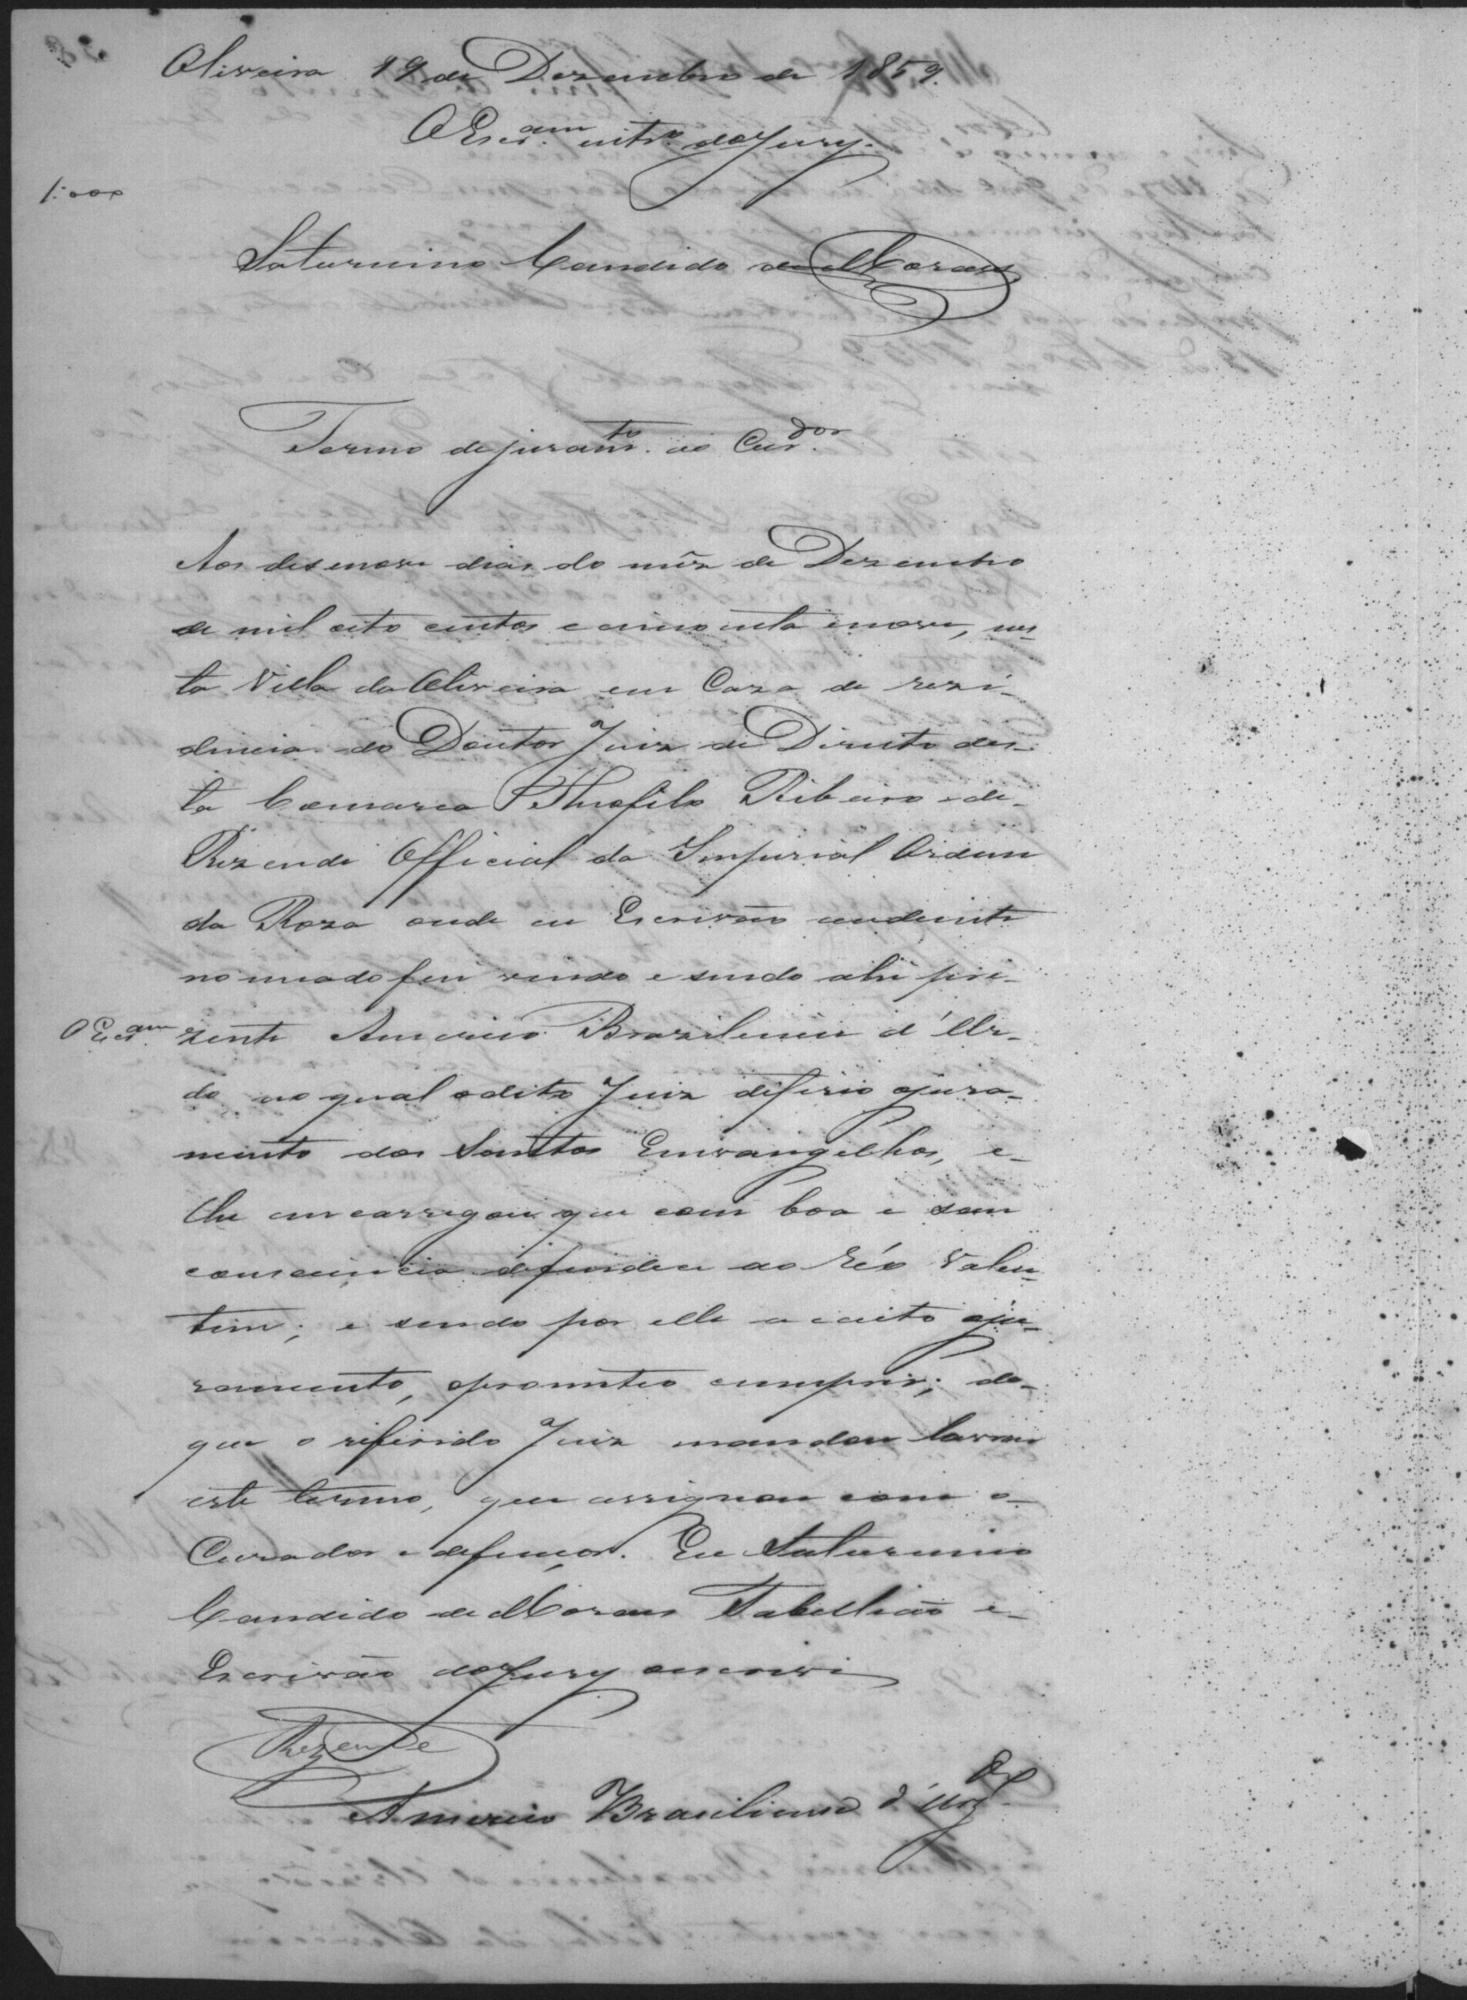 Oliveira 19 de Dezembro de 1859.
O Escr.am intr.º do Jury.
1:000
Saturnino Candido de Moraes
Termo de juram.to ao Cur.dor
Aos desenove dias do mêz de Dezembro
de mil oito centos e cincoenta e nove, nes-
ta Villa da Oliveira em Caza de rezi-
dencia do Doutor Juiz de Direito des-
ta Comarca Theofilo Ribeiro de
Rezende Official da Imperial Ordem
da Roza onde eu Escrivão
nomeado fui vindo e sendo ahi pre-
O Escr.am
zente Americo Braziliense d'
do ao qual o dito Juiz deferio o jura-
mento dos Santos Envangelhos, e
lhe encarregou que com boa e sam
consciencia defendeu ao réo Valen-
tim; e sendo por elle aceito o ju-
ramento, prometeo cumprir; do
que o referido Juiz mandou lavrar
este termo, que assignou com o
Curador e defençor. Eu Saturnino
Candido de Moraes Tabellião e
Escrivão do Jury o escrevi
Rezende
Americo Braziliense d'